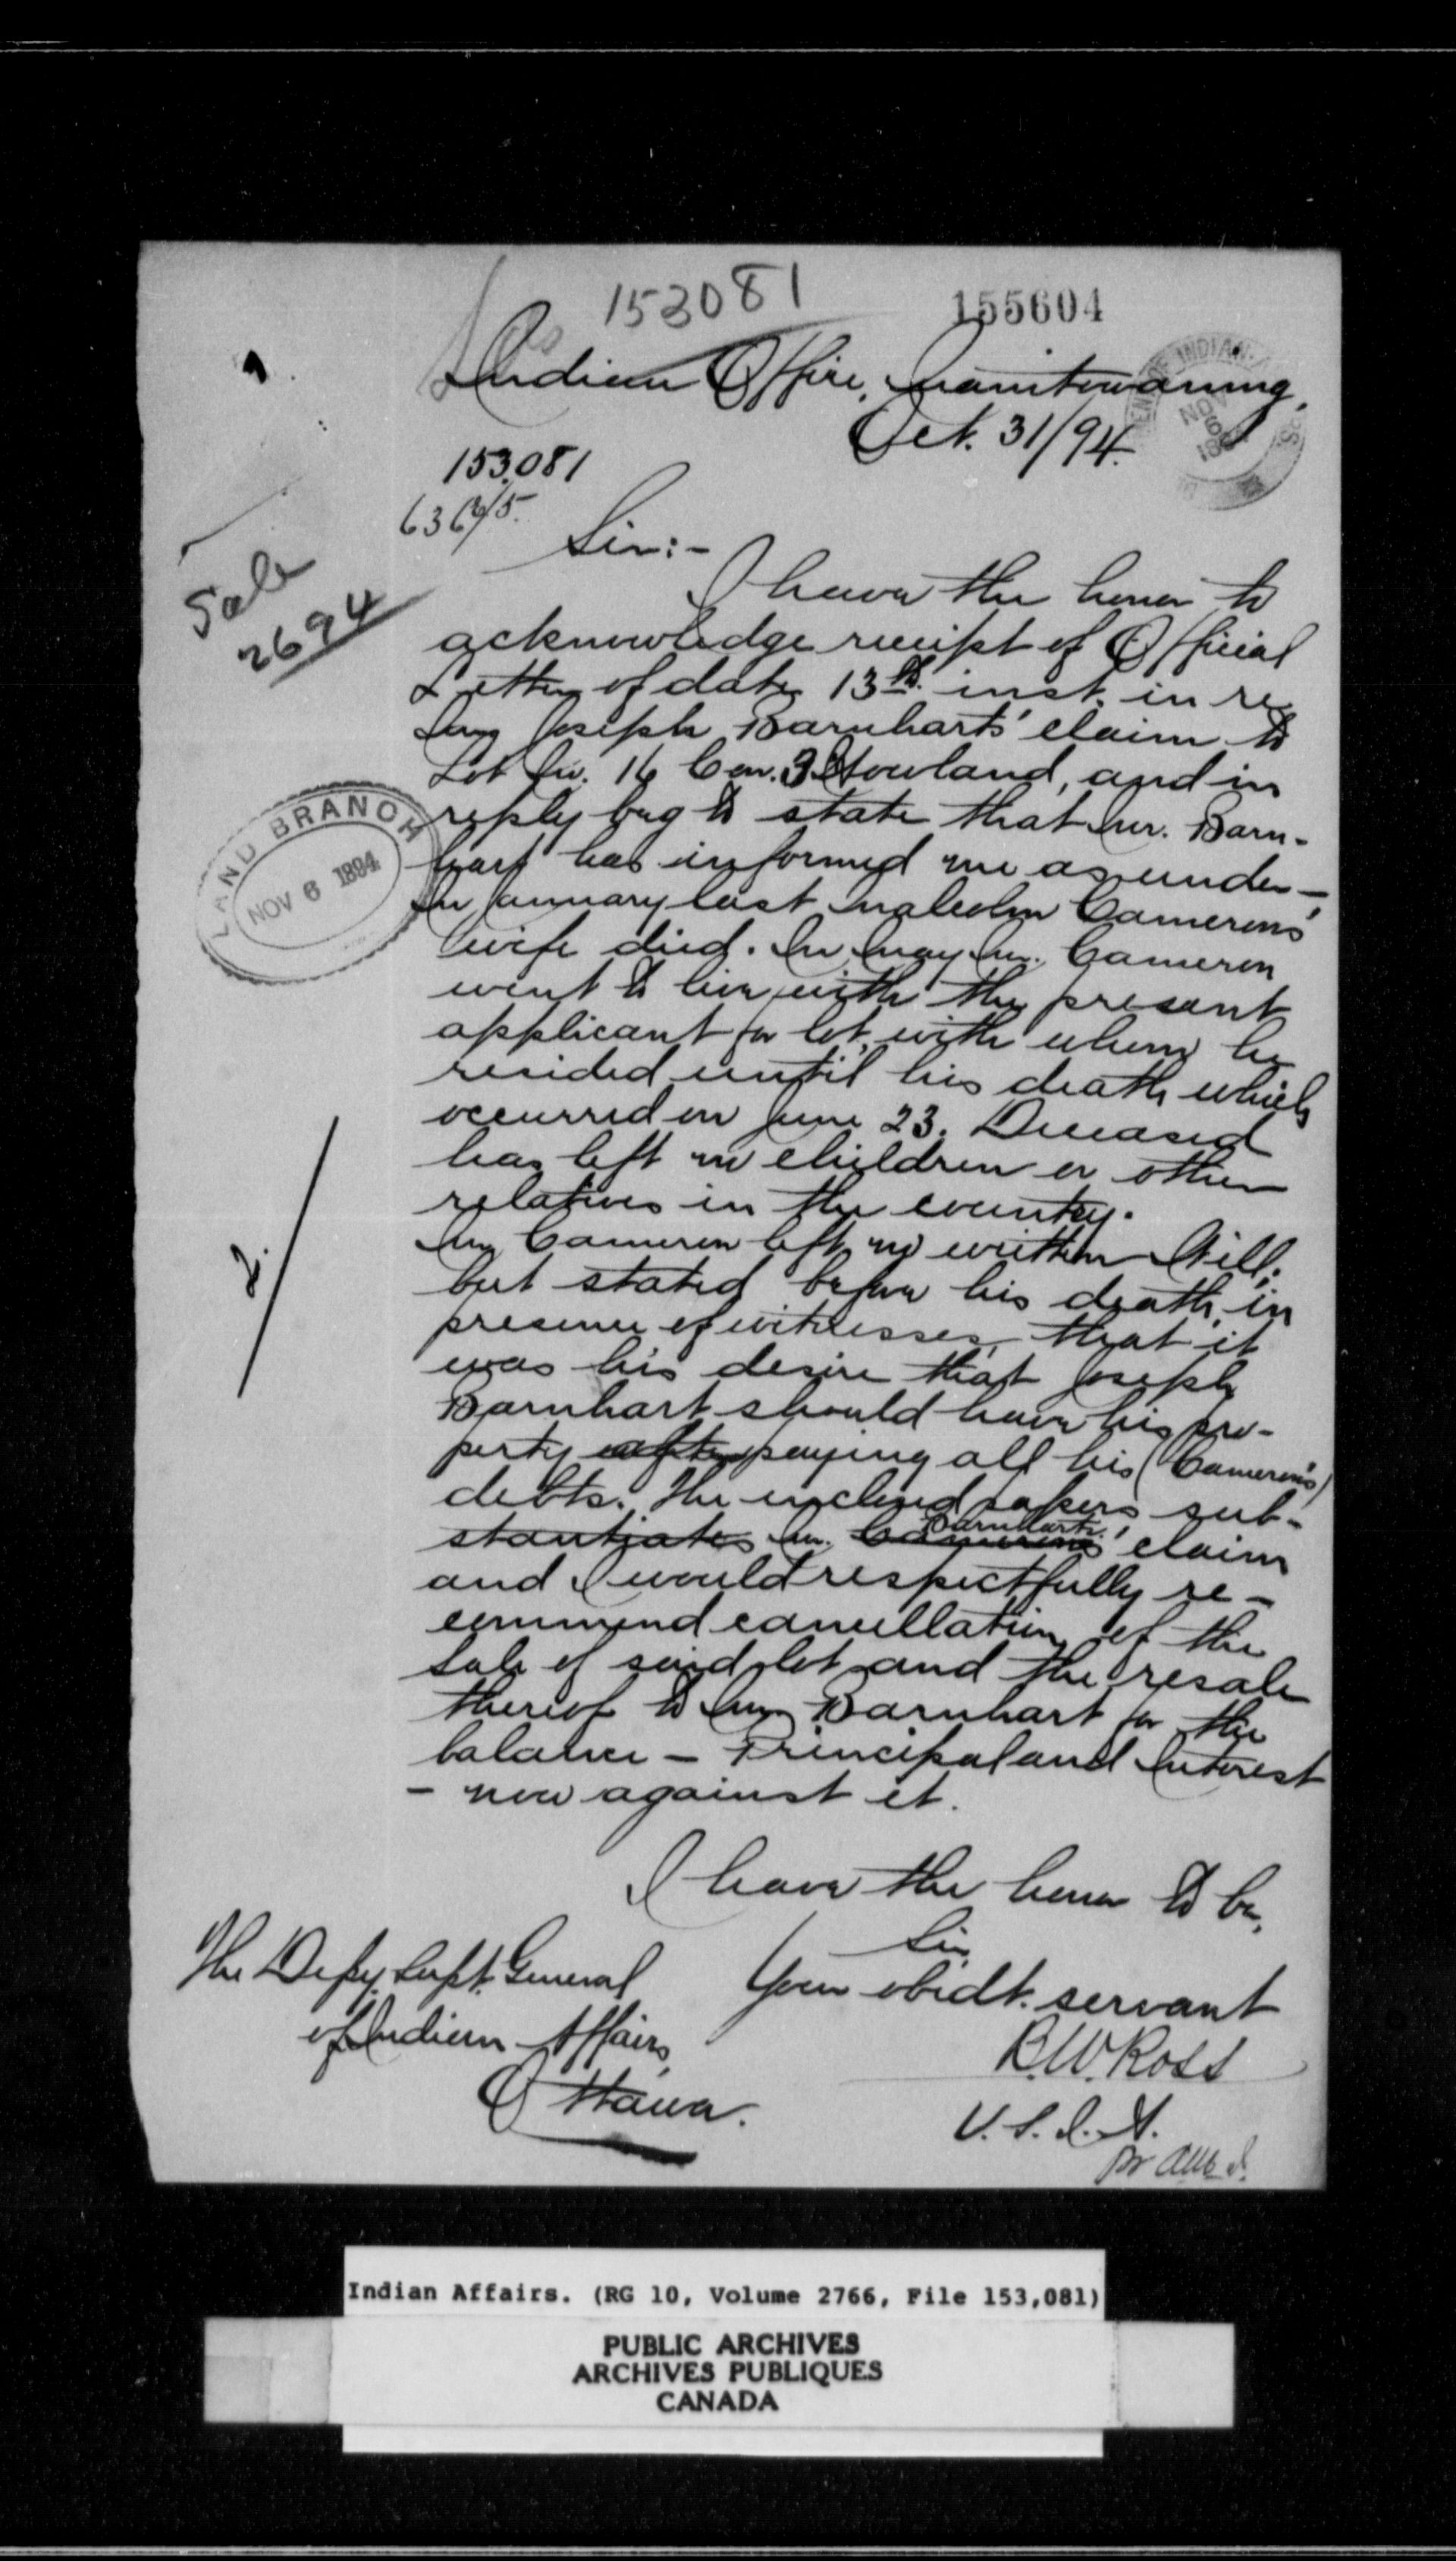 153081
155604
Indian Office, Manitowaning,
Oct. 31/94.
153.081
Sir:-
Sale
2694
I have the honor to
acknowledge receipt of Official
Letter of date 13th inst. in re
Mr. Joseph Barnharts' claim to
Lot No. 16 Con. 3 Howland, and in
reply beg to state that Mr. Barn-
hart has informed me as under-
In January last Malcolm Camerons'
wife died. In May Mr. Cameron
went to live with the present
applicant for lot, with whom he
resided until his death which
occurred on June 23. Deceased
has left no children or other
relatives in the country.
Mr. Cameron left no written Will;
but stated before his death, in
presence of witnesses, that it
was his desire that Joseph
Barnhart should have his pro-
perty after paying all his (Cameron's)
debts. The enclosed papers sub-
stantiates Mr. Camerons' Barnharts' claim
and I would respectfully re-
commend cancellation of the
sale of said lot and the resale
thereof to Mr. Barnhart for the
balance - Principal and Interest
- now against it.
I have the honor to be,
Sir
Your obedt. servant
B.W. Ross
V.S.I.A.
The Depy. Supt. General
of Indian Affairs,
Ottawa.
LAND BRANCH
NOV 6 1894
2.
INDIAN
NOV
6
Indian Affairs. (RG 10, Volume 2766, File 153,081)
PUBLIC ARCHIVES
ARCHIVES PUBLIQUES
CANADA